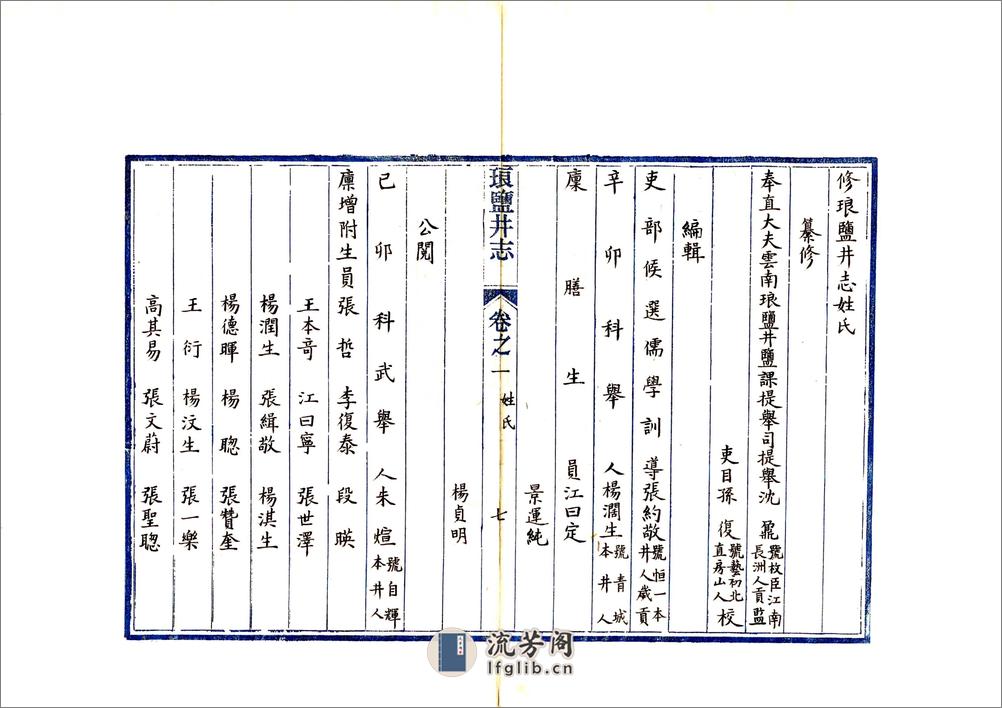 修琅鹽井志姓氏
纂修
奉直大夫雲南琅鹽井鹽課提舉司提舉沈鼐號枚臣江南長洲人貢監
吏目孫復號藝初北直房山人校
編輯
吏部候選儒學訓導張約敬號恒一本井人歲貢
辛卯科舉人楊濶生號青城本井人
廩膳生員江曰定
景運純
琅鹽井志 卷之一 姓氏 七
楊貞明
公閱
己卯科武舉人朱煊號自輝本井人
廩增附生員張哲 李復泰 段暎
王本竒 江曰寧 張世澤
楊潤生 張緝敬 楊淇生
楊德暉 楊聰 張贊奎
王衍 楊汶生 張一樂
高其易 張文蔚 張聖聰
流芳阁
lfglib.cn